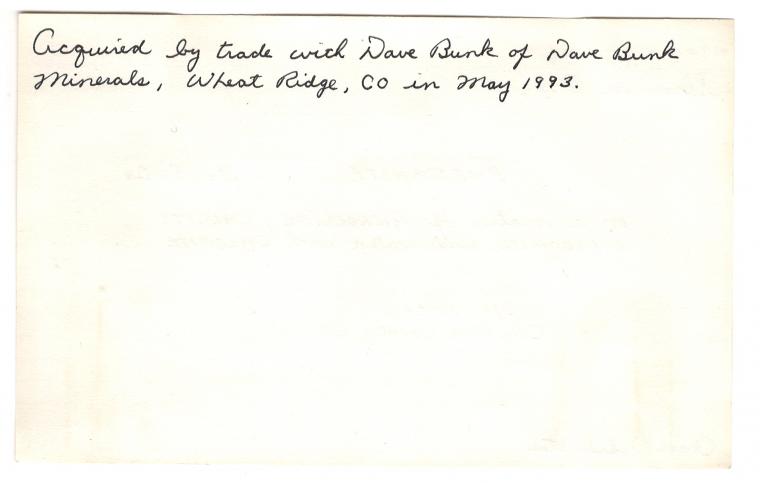 Acquired by trade with Dave Bunk of Dave Bunk
Minerals, Wheat Ridge, CO in May 1993.